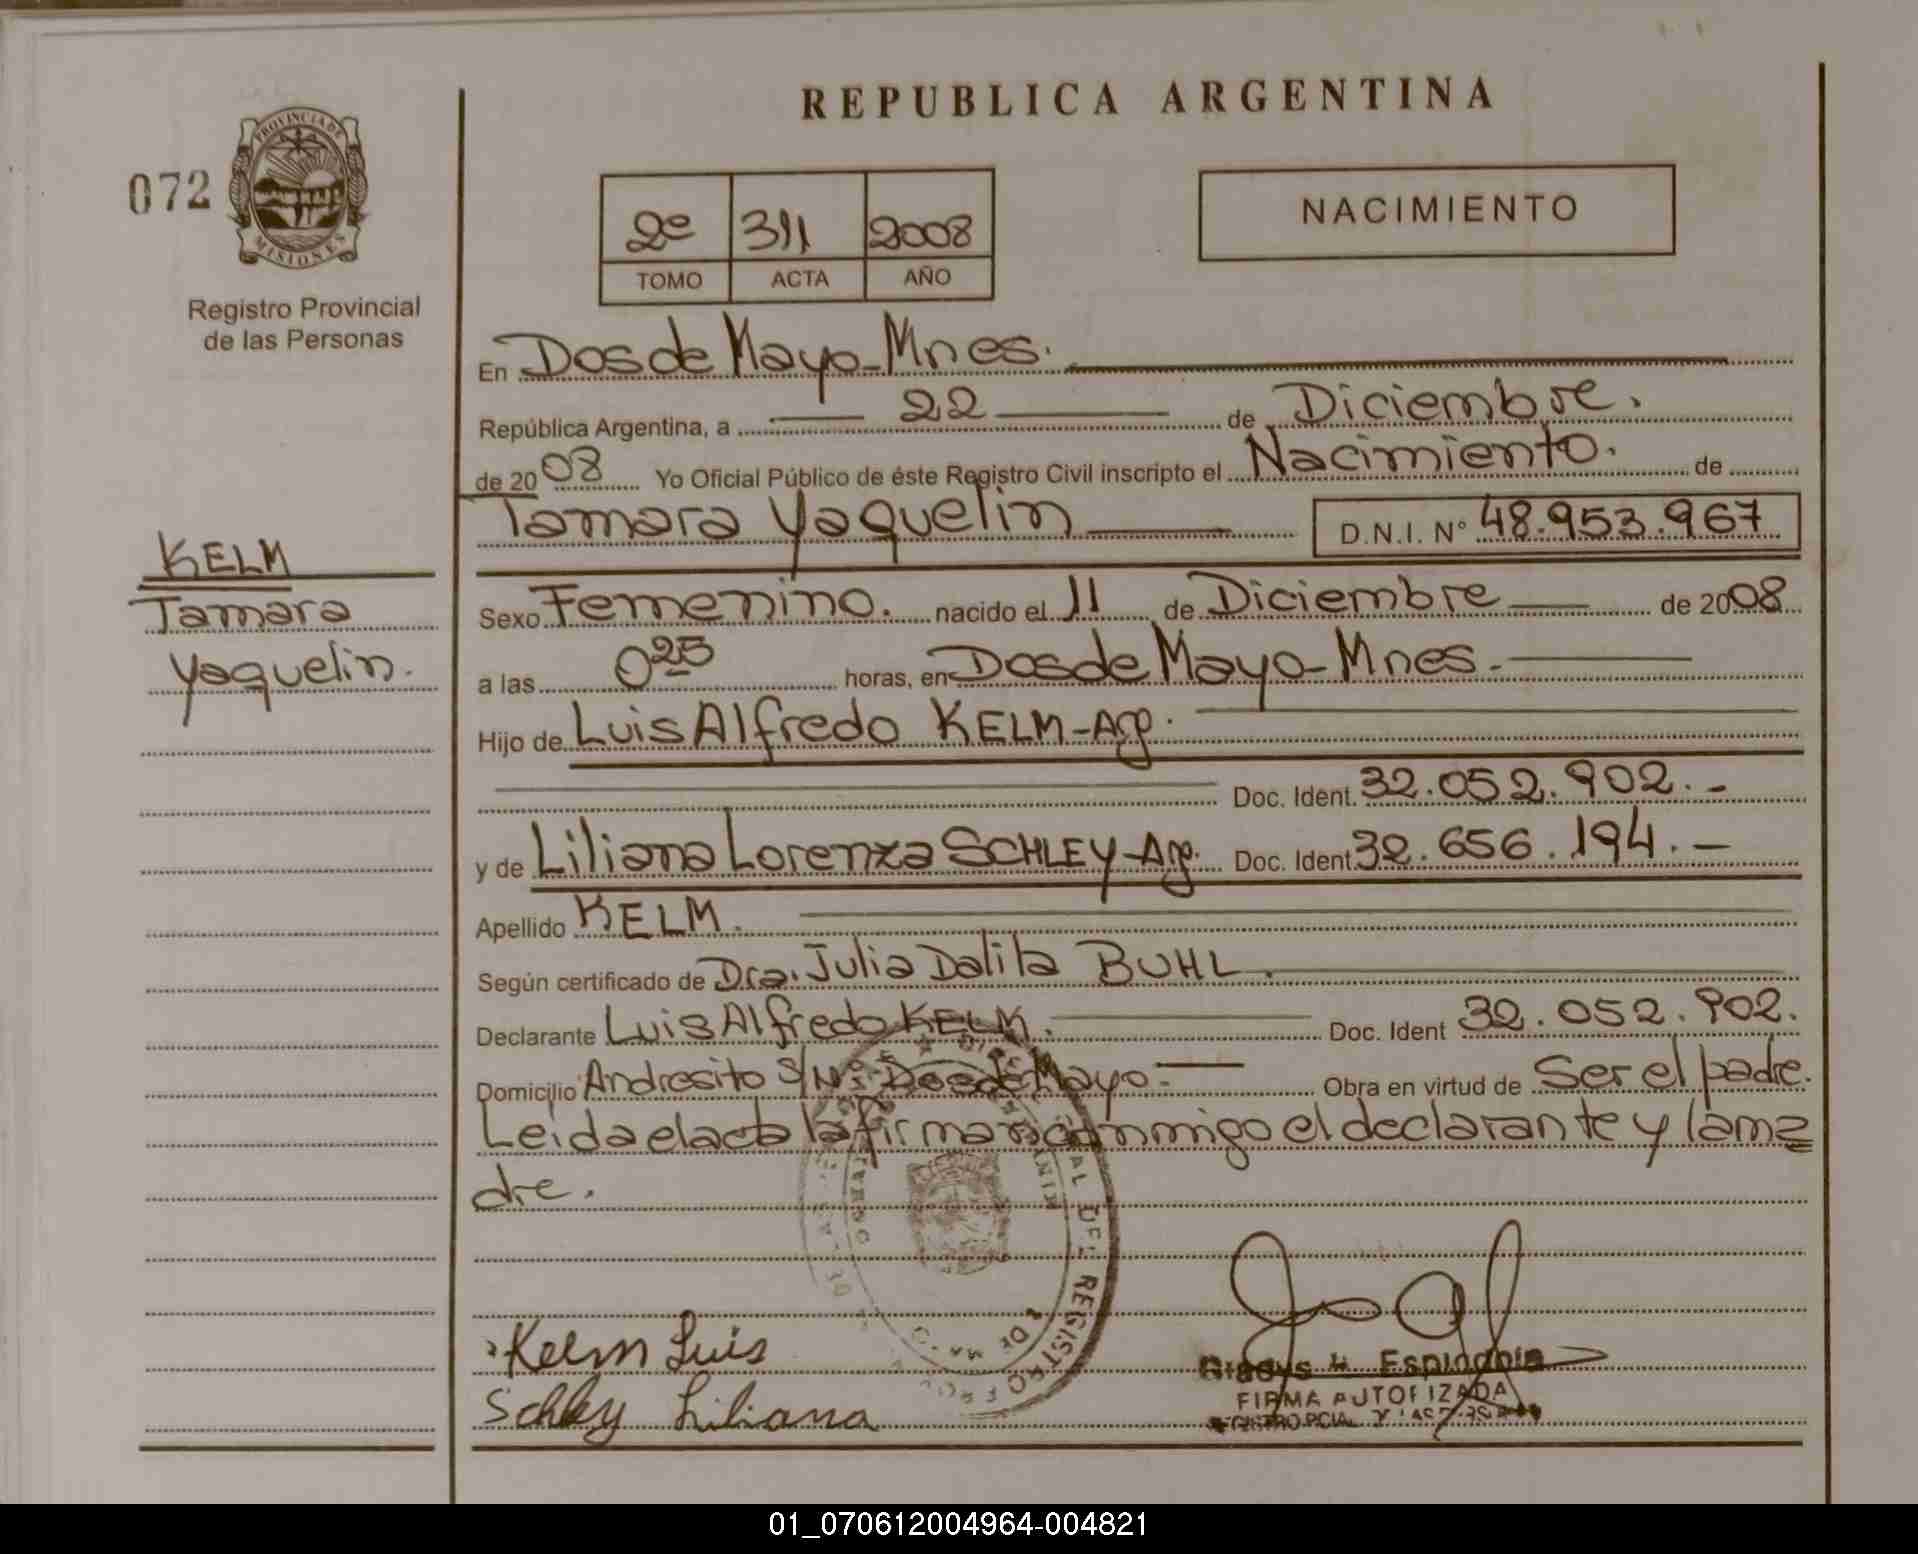 REPUBLICA ARGENTINA
072
PROVINCIA DE
MISIONES
Registro Provincial
de las Personas
2º 311 2008
TOMO ACTA AÑO
NACIMIENTO
En Dos de Mayo-Mnes.
República Argentina, a 22 de Diciembre.
de 2008 Yo Oficial Público de éste Registro Civil inscripto el Nacimiento. de
Tamara Yaquelin D.N.I. Nº 48.953.967
KELM
Tamara
Yaquelin.
Sexo Femenino. nacido el 11 de Diciembre de 2008
a las 0 25 horas, en Dos de Mayo-Mnes.
Hijo de Luis Alfredo KELM-Arg.
Doc. Ident. 32.052.902.-
y de Liliana Lorenza SCHLEY-Arg. Doc. Ident. 32.656.194.-
Apellido KELM.
Según certificado de Dra. Julia Dalila BUHL.
Declarante Luis Alfredo KELM. Doc. Ident 32.052.902.
Domicilio Andresito S/Nº. Dos de Mayo.- Obra en virtud de Ser el padre.
Leida el acta la firman conmigo el declarante y la ma=
dre.
DEL REGISTRO
Kelm Luis
Schley Liliana
Gladys Espindola
FIRMA AUTORIZADA
01_070612004964-004821